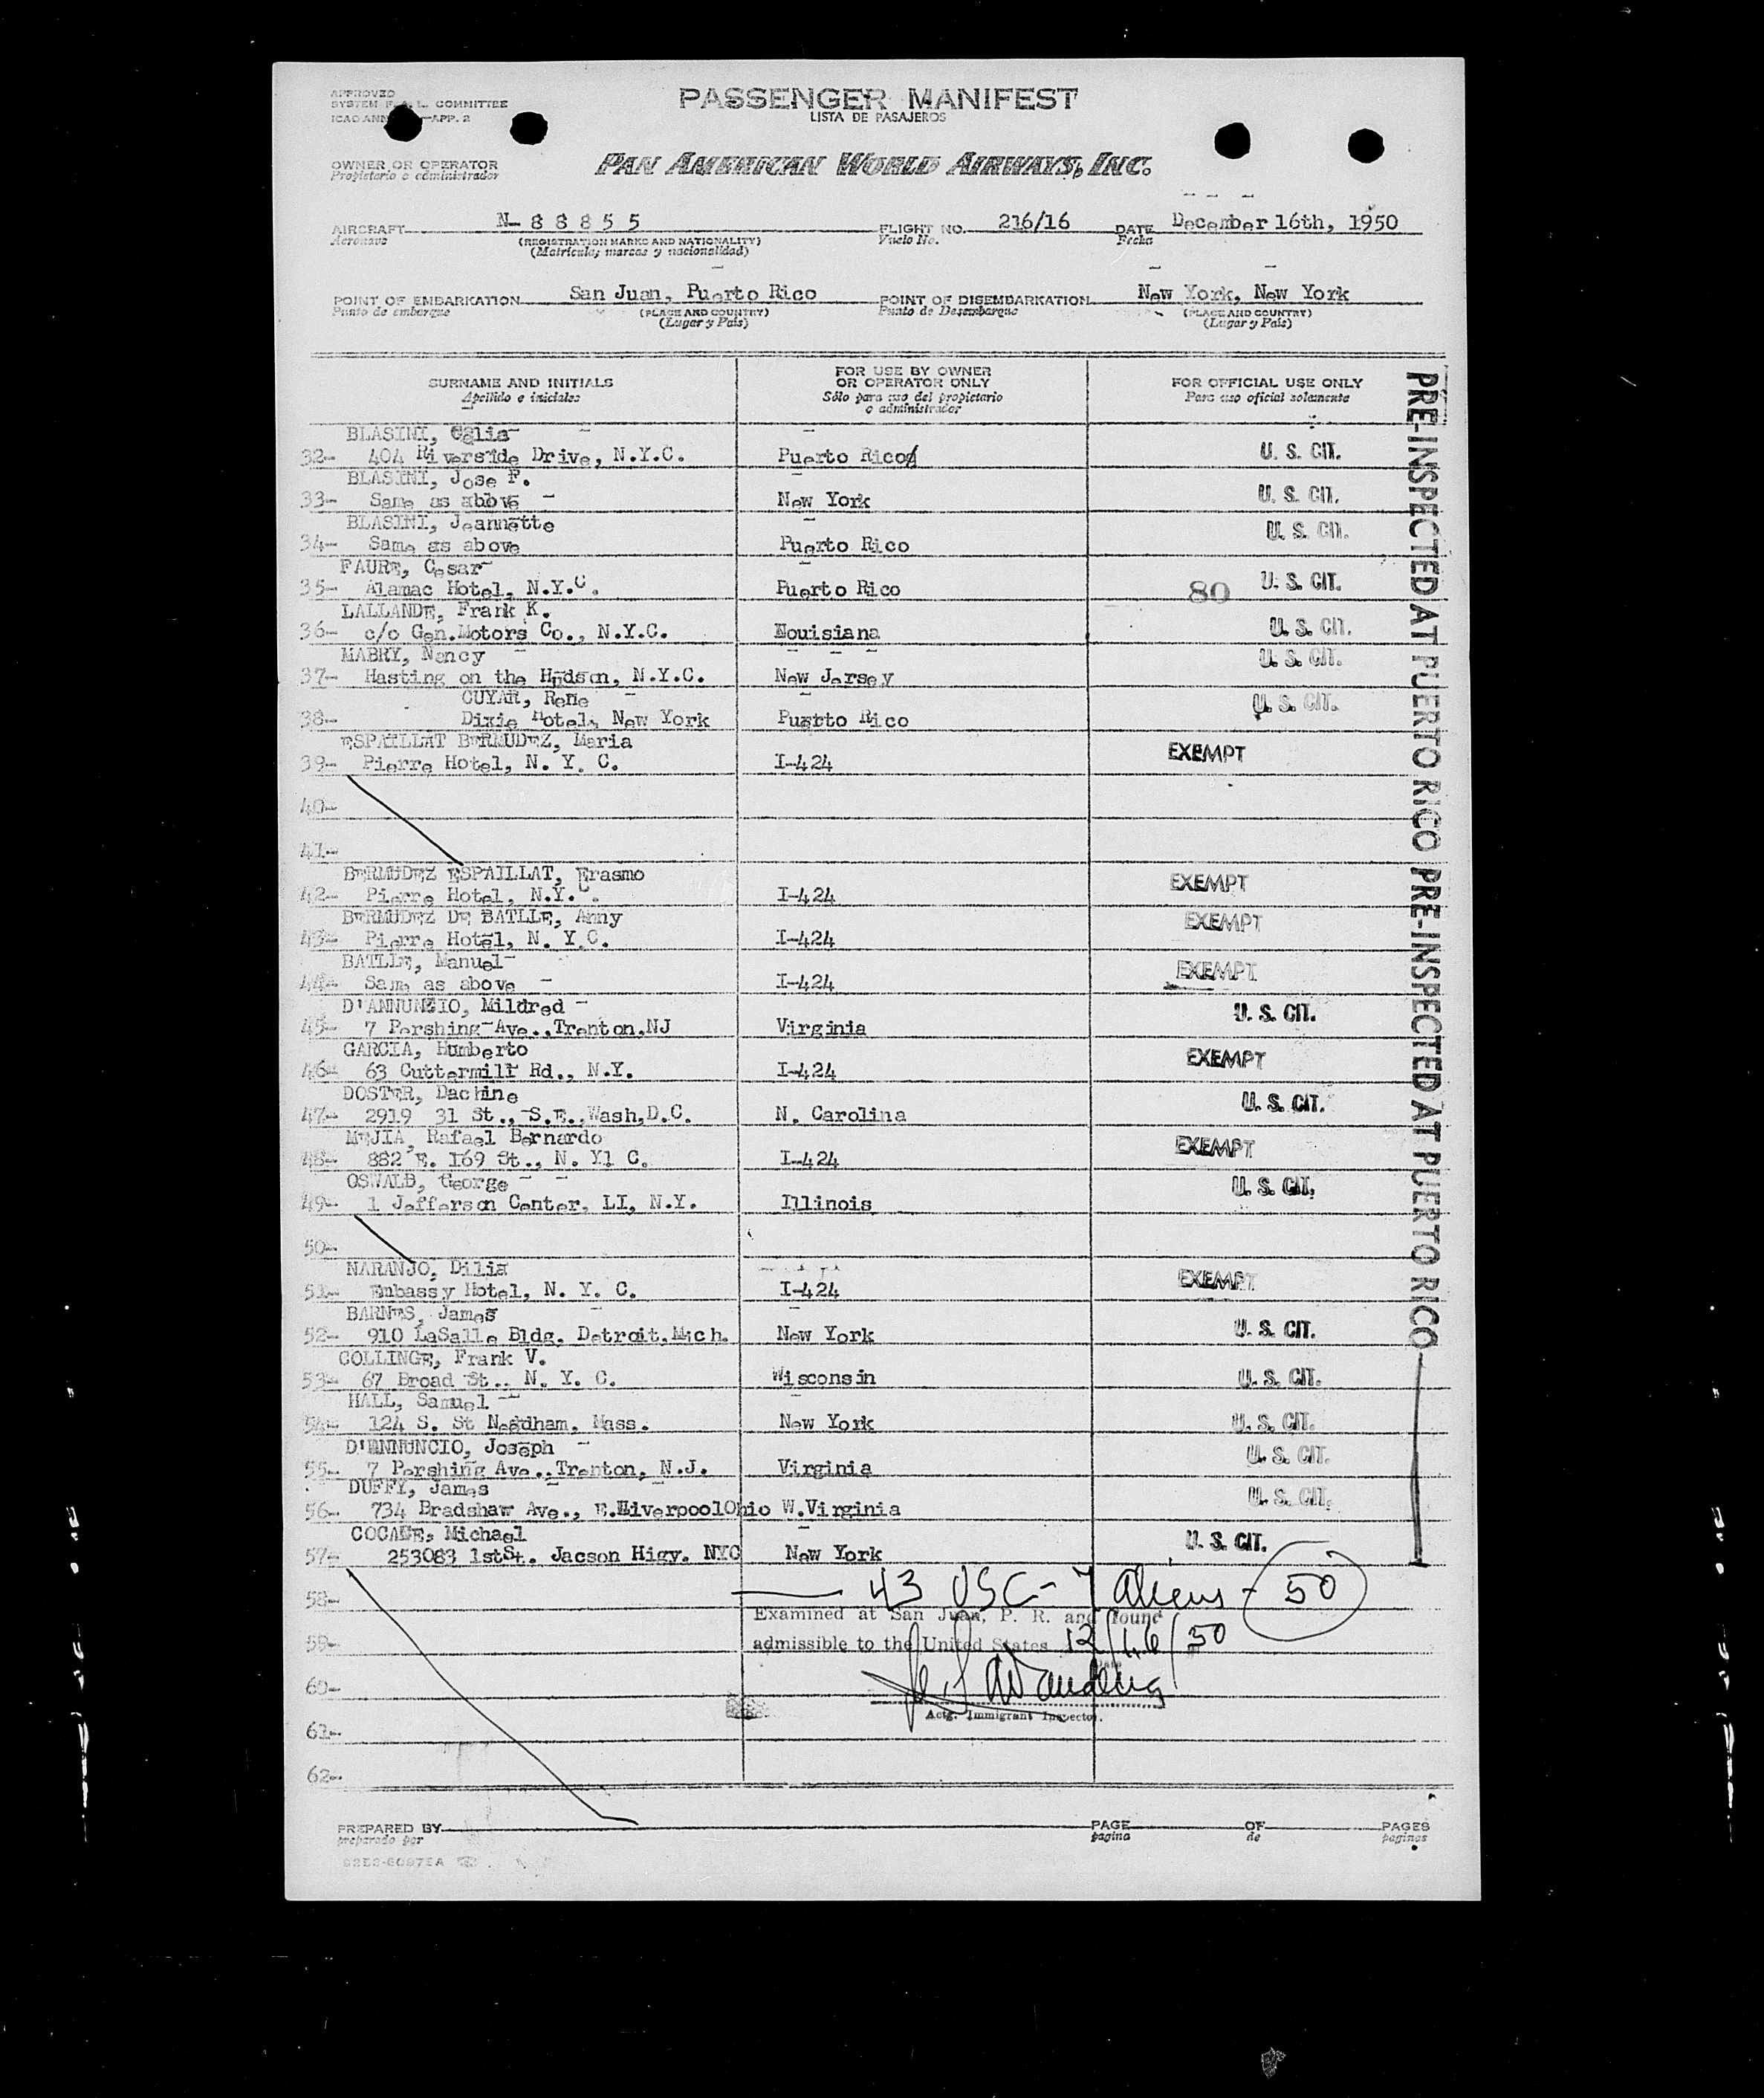 APPROVED
SYSTEM F.A.L. COMMITTEE
ICAO ANN —APP. 2
PASSENGER MANIFEST
LISTA DE PASAJEROS
OWNER OR OPERATOR
Propietario o administrador
PAN AMERICAN WORLD AIRWAYS, INC.
AIRCRAFT N- 8 8 8 5 5 FLIGHT NO. 216/16 DATE December 16th, 1950
Aeronave (REGISTRATION MARKS AND NATIONALITY) Vuelo No. Fecha
(Matricula; marcas y nacionalidad)
POINT OF EMBARKATION San Juan, Puerto Rico POINT OF DISEMBARKATION New York, New York
Punto de embarque (PLACE AND COUNTRY) Punto de Desembarque (PLACE AND COUNTRY)
(Lugar y País) (Lugar y País)
SURNAME AND INITIALS FOR USE BY OWNER OR OPERATOR ONLY FOR OFFICIAL USE ONLY
Apellido e iniciales Sólo para uso del propietario o administrador Para uso oficial solamente
PRE-INSPECTED AT PUERTO RICO PRE-INSPECTED AT PUERTO RICO
BLASINI, Celia
32- 404 Riverside Drive, N.Y.C. Puerto Rico U. S. CIT.
BLASINI, Jose F.
33- Same as abbve New York U. S. CIT.
BLASINI, Jeannette
34- Same as above Puerto Rico U. S. CIT.
FAURE, Cesar
35- Alamac Hotel, N.Y.C. Puerto Rico 80 U. S. CIT.
LALLANDE, Frank K.
36- c/o Gen.Motors Co., N.Y.C. Nouisiana U. S. CIT.
MABRY, Nancy
37- Hasting on the Hudson, N.Y.C. New Jersey U. S. CIT.
CUYAR, Rene
38- Dixie Hotel, New York Puerto Rico U. S. CIT.
ESPAILLAT BERMUDEZ, Maria
39- Pierre Hotel, N. Y. C. I-424 EXEMPT
40-
41-
BERMUDEZ ESPAILLAT, Erasmo
42- Pierre Hotel, N.Y.C. I-424 EXEMPT
BERMUDEZ DE BATLLE, Anny
43- Pierre Hotel, N. Y.C. I-424 EXEMPT
BATLLE, Manuel
44- Same as above I-424 EXEMPT
D'ANNUNZIO, Mildred
45- 7 Pershing Ave.,Trenton,NJ Virginia U. S. CIT.
GARCIA, Humberto
46- 63 Cuttermill Rd., N.Y. I-424 EXEMPT
DOSTER, Dachine
47- 2919 31 St., S.E.,Wash,D.C. N. Carolina U. S. CIT.
MEJIA, Rafael Bernardo
48- 882 E. 169 St., N. Yl C. I-424 EXEMPT
OSWALD, George
49- 1 Jefferson Center, LI, N.Y. Illinois U. S. CIT.
50-
NARANJO, Dilia
51- Embassy Hotel, N. Y. C. I-424 EXEMPT
BARNES, James
52- 910 LaSalle Bldg. Detroit,Mich. New York U. S. CIT.
COLLINGE, Frank V.
53- 67 Broad St.. N. Y. C. Wisconsin U. S. CIT.
HALL, Samuel
54- 124 S. St Needham, Mass. New York U. S. CIT.
D'ANNUNCIO, Joseph
55- 7 Pershing Ave.,Trenton, N.J. Virginia U. S. CIT.
DUFFY, James
56- 734 Bradshaw Ave., E.LiverpoolOhio W.Virginia U. S. CIT.
Michael
57- 253083 1stSt. Jacson Higy. NYC New York U. S. CIT.
43 USC - 7 Aliens - 50
58-
Examined at San Juan, P. R. and found
59- admissible to the United States 12/16/50
60-
Actg. Immigrant Inspector.
61-
62-
PREPARED BY PAGE OF PAGES
preparado por pagina de paginas